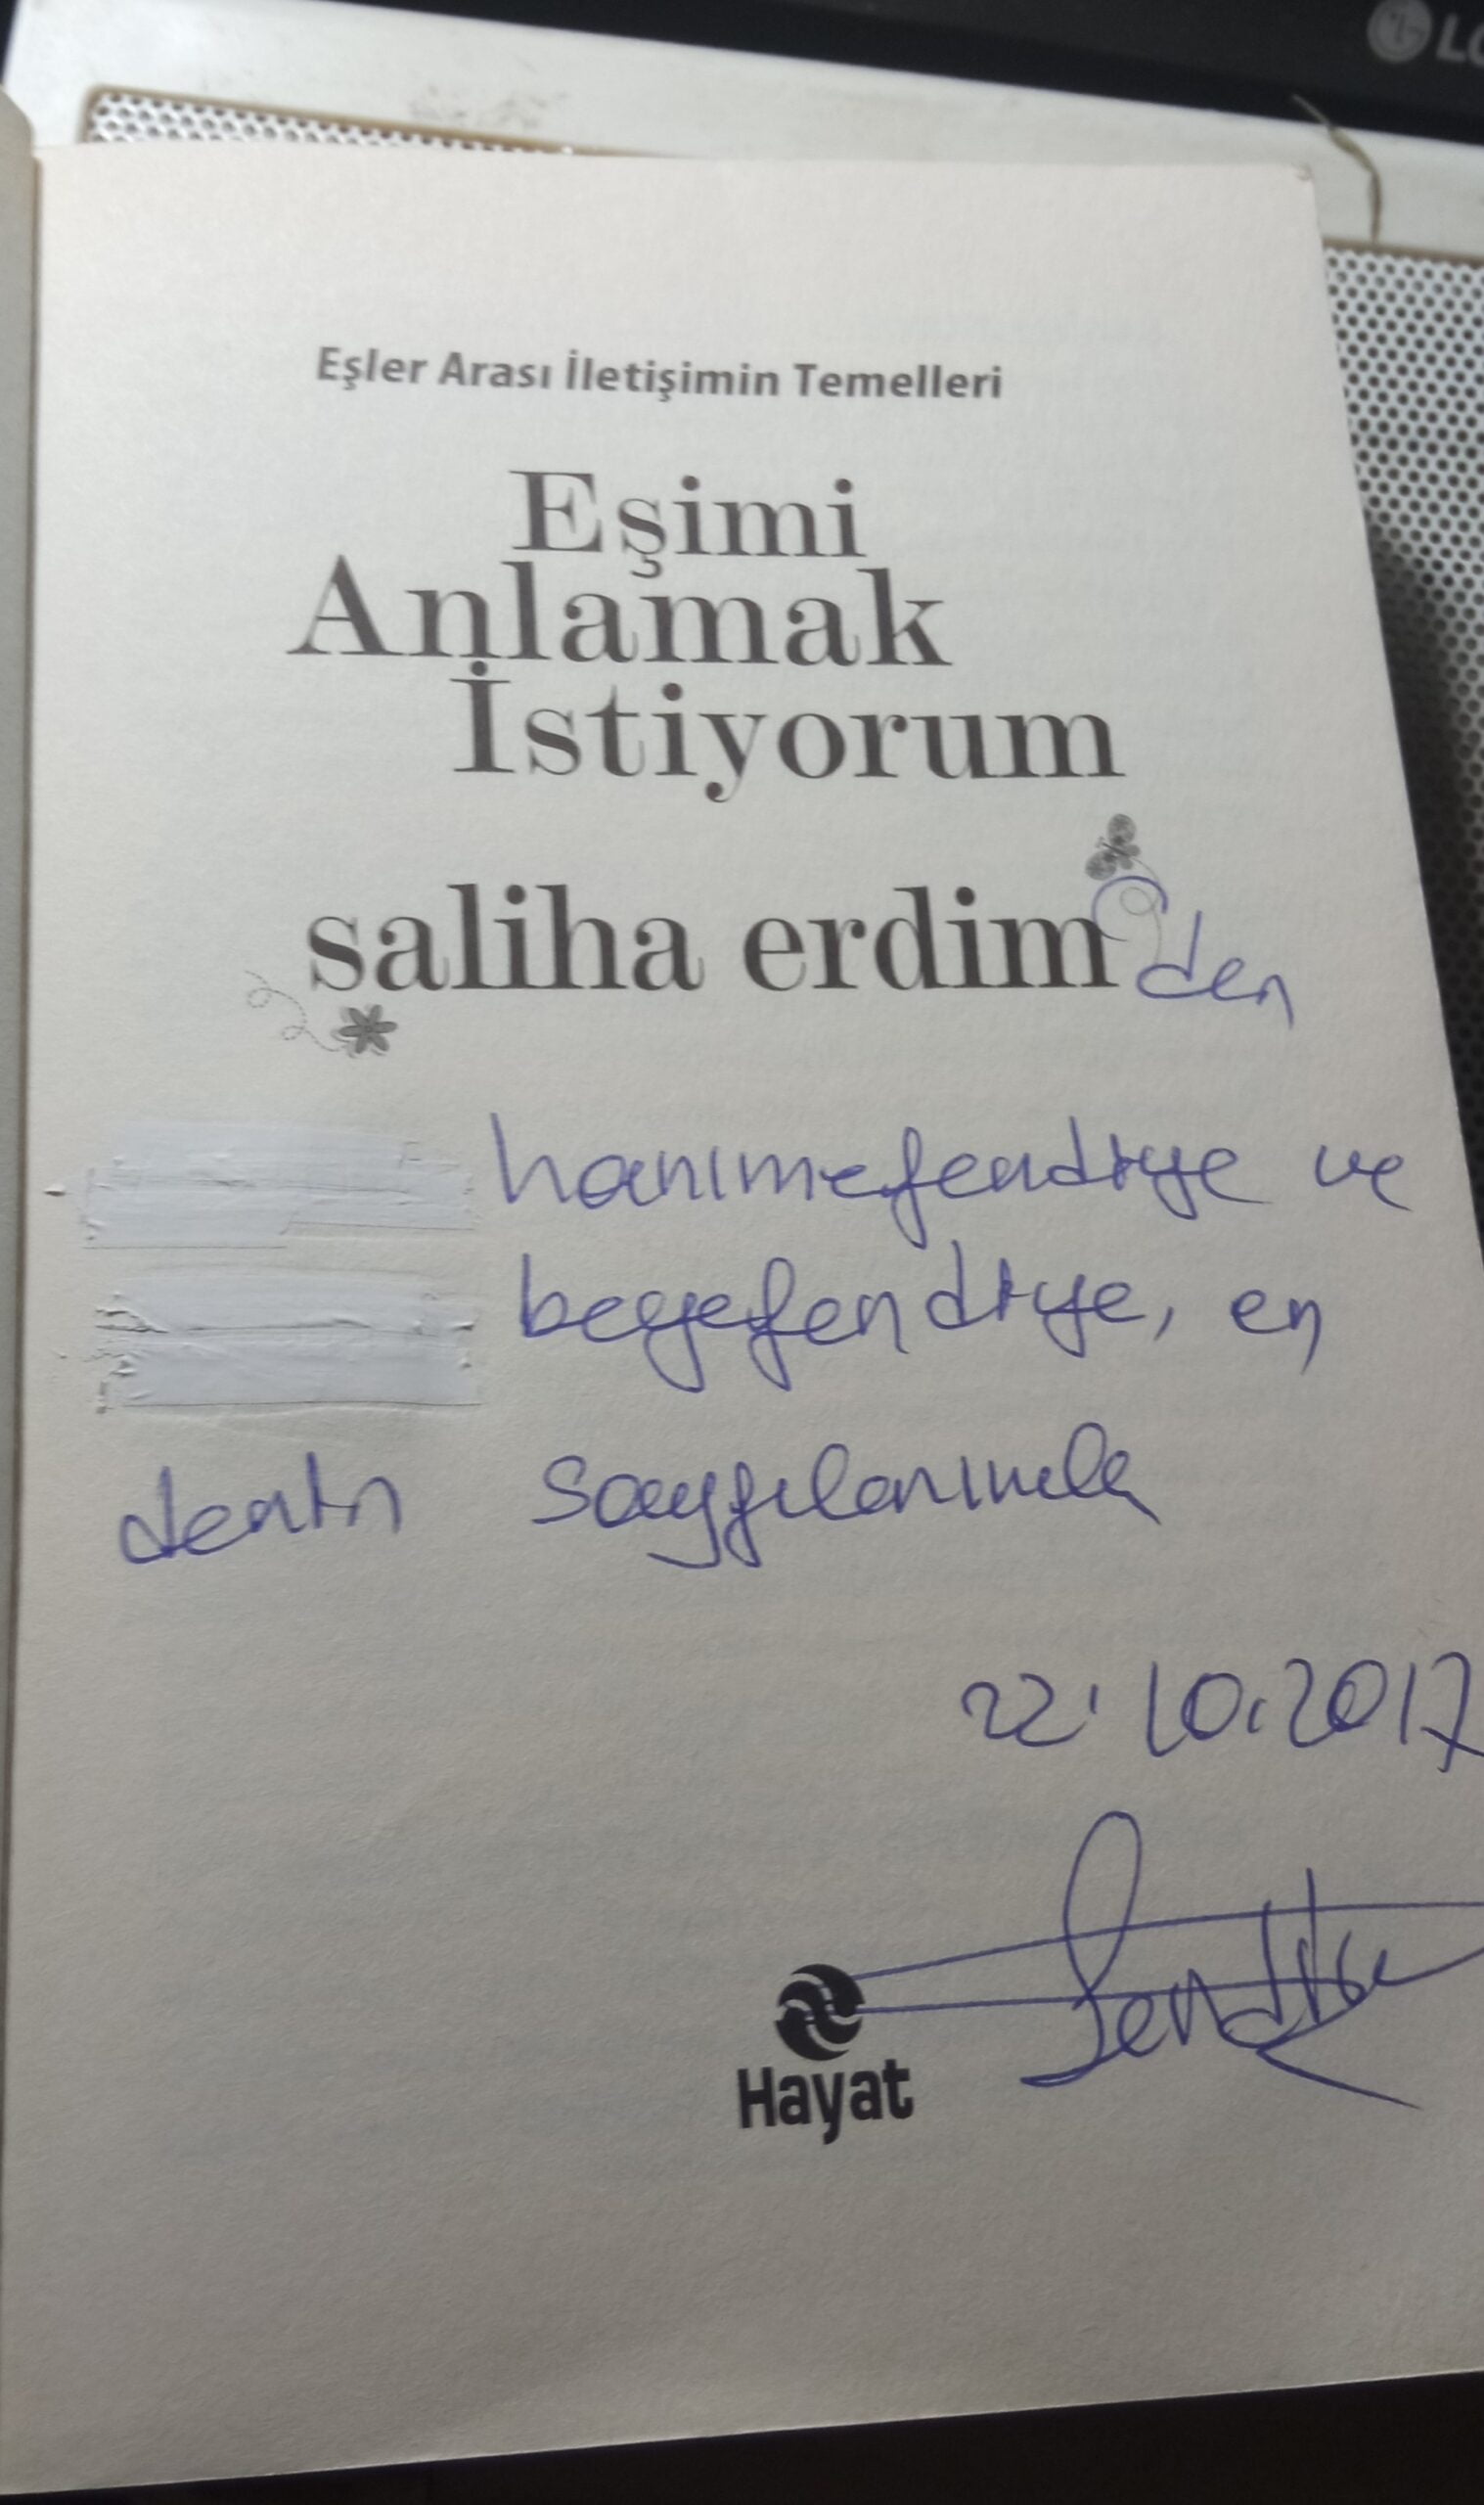 LG
Eşler Arası İletişimin Temelleri
Eşimi
Anlamak
İstiyorum
saliha erdim'den
hanımefendiye ve
beyefendiye, en
derin saygılarımla
22.10.2017
Hayat